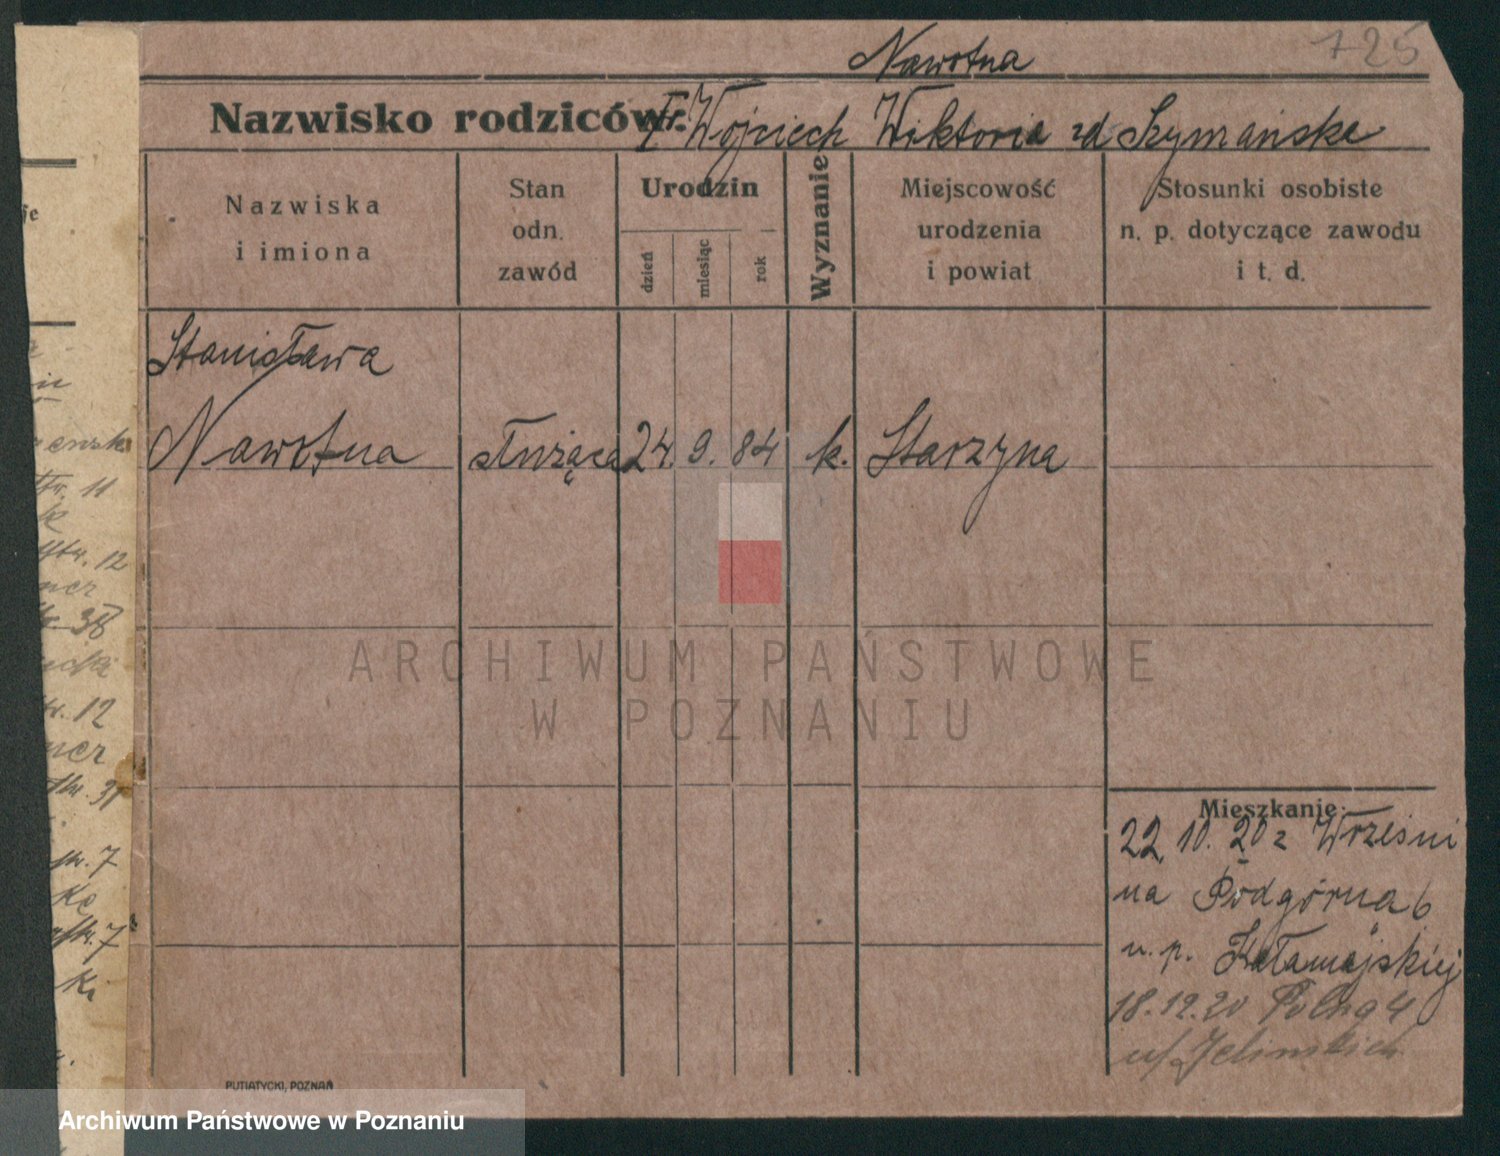 725
Nawotna
Nazwisko rodziców: Wojciech Wiktoria zd Szymańska
Nazwiska
i imiona
Stan
odn.
zawód
Urodzin
dzień
miesiąc
rok
Wyznanie
Miejscowość
urodzenia
i powiat
Stosunki osobiste
n. p. dotyczące zawodu
i t. d.
Stanisława
Nawotna służąca 24. 9. 84 k. Starzyna
ARCHIWUM PAŃSTWOWE
W POZNANIU
Mieszkanie:
22. 10. 20 z Wrześni
na Podgórna 6
u. p.
18.12.20 Polna 4
PUTIATYCKI, POZNAŃ
Str. 11
Str. 12
38
12
31
7
7
ki
Archiwum Państwowe w Poznaniu